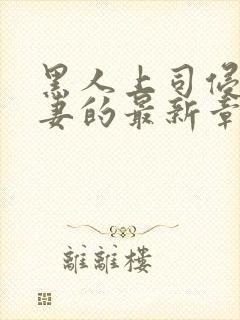 黑人上司侵
妻的最新章
離離樓